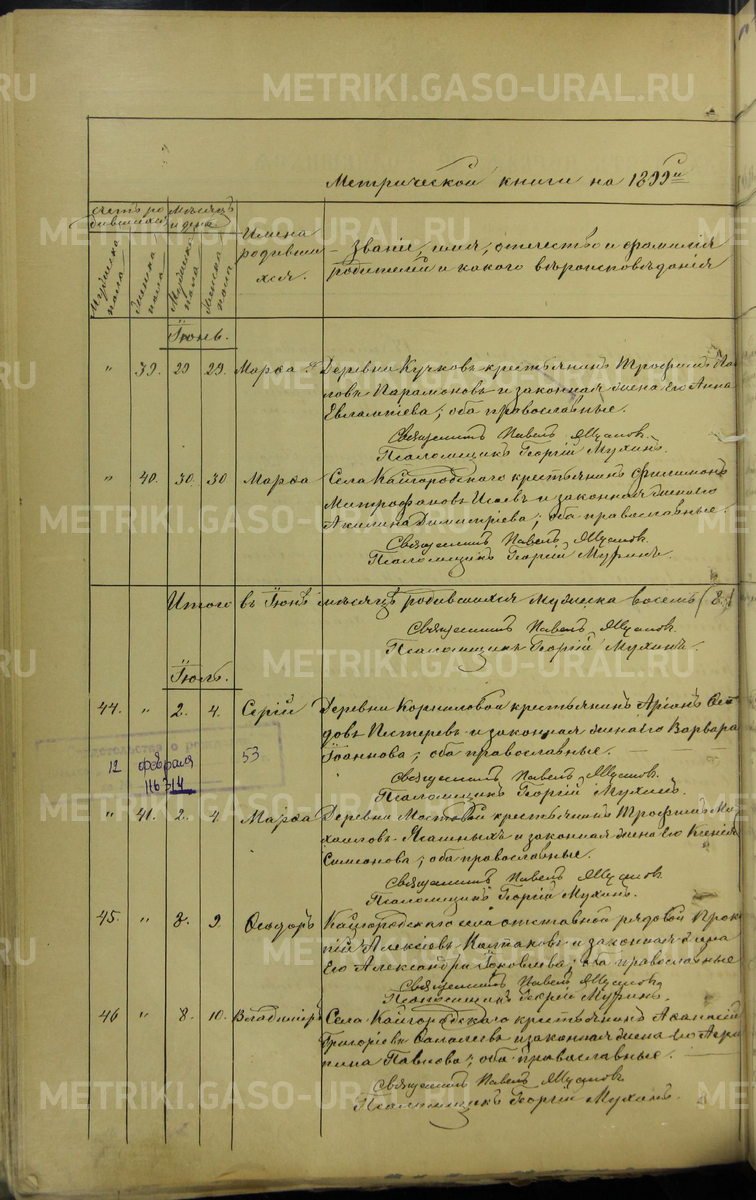 METRIKI.GASO-URAL.RU
Метрической книги на 1899й
Счетъ ро
дившихся
Мѣсяцъ
и день
Имена
родивши
хся.
Мужеска
пола
Женска
пола
Мужска
пола
Женска
пола
Званіе, имя, отечество и фамилія
родителей и какого вѣроисповѣданія
Іюнь.
" 39. 29 29. Марѳа Деревни Кучковъ крестьянинъ Трофимъ Пав
ловъ Парамоновъ и законная жена его Анна
Евлампіева; оба православные.
Священникъ Павелъ
Псаломщикъ Георгій Мухинъ.
" 40. 30. 30 Марѳа Села Кайгородскаго крестьянинъ Филимонъ
Митрофановъ Исаевъ и законная жена его
Акилина Димитріева; оба православные.
Священникъ Павелъ
Псаломщикъ Георгій Мухинъ.
Итого въ Іюнѣ мѣсяцѣ родившихся мужеска восемь (8)
Священникъ Павелъ
Псаломщикъ Георгій Мухинъ.
Іюль.
44. " 2. 4. Сергій Деревни Корниловой крестьянинъ Аріонъ Ѳео
довъ Пестеревъ и законная жена его Варвара
Іоаннова; оба православные.
12 февраля 53
Священникъ Павелъ
Псаломщикъ Георгій Мухинъ.
" 41. 2. 4. Марѳа Деревни Мостовой крестьянинъ Трофимъ Ми
хаиловъ Ясашныхъ и законная жена его Ксенія
Симеонова; оба православные.
Священникъ Павелъ
Псаломщикъ Георгій Мухинъ.
45. " 8. 9. Ѳеодоръ Кайгородскаго села отставной рядовой Прок
пій Алексіевъ Колтаковъ и законная жена
его Александра Іаковлева; оба православные
Священникъ Павелъ
Псаломщикъ Георгій Мухинъ.
46 " 8. 10. Владиміръ Села Кайгородскаго крестьянинъ Аѳанасій
Григоріевъ и законная жена его Агри
пина Павлова; оба православные.
Священникъ Павелъ
Псаломщикъ Георгій Мухинъ.